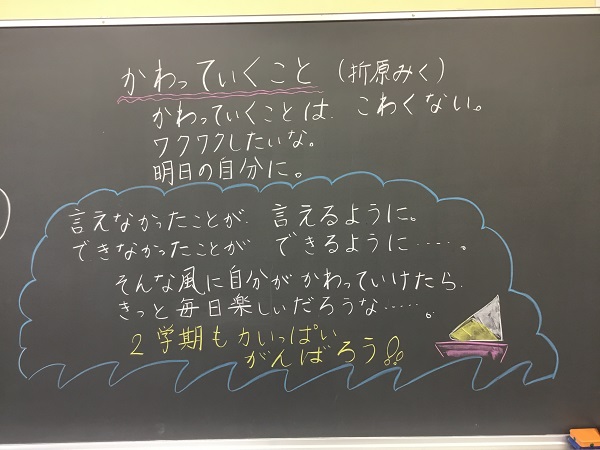 かわっていくこと (折原みく)
かわっていくことは、こわくない。
ワクワクしたいな。
明日の自分に。
言えなかったことが、言えるように。
できなかったことが できるように……。
そんな風に自分が かわっていけたら、
きっと毎日楽しいだろうな……。
2学期も力いっぱい
がんばろう!!